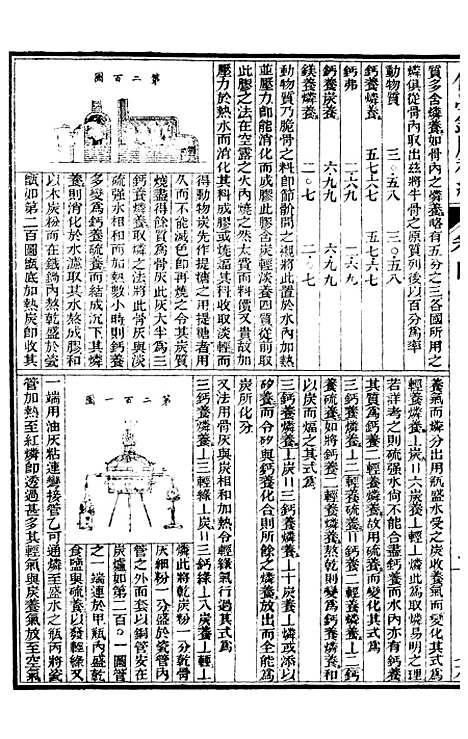 質多含燐養如骨內之燐養略有五分之三各國所用之
燐俱從骨內取出玆將牛骨之原質列後以百分爲率
動物質　三〇.五八　三〇.五八
鈣養燐養　五七六七　五七六七
鈣弗
鈣養炭養　六九九　六.九九
鎂養燐養　二.〇七　二.〇七
動物質乃脆骨之料卽節骱間之襯將此置於水內加熱
並壓力卽能消化而成膠此質含炭輕淡養四質從前取
此膠之法在空露之火內燒之然太費而料價又貴故加
壓力於熱水而消化其料成膠或燒熰其料收取淡輕而
第二百圖
得動物炭先作提糖之用提糖者用
久而不能滅色卽再燒之令其炭質
燒盡得餘質爲骨灰大半爲三
鈣養燐養取燐之法將此骨灰與淡
硫強水相和而加熱數小時則鈣養
多變爲鈣養硫養而結成沉下其燐
養則消化於水濾取其水熬成膠和
以木炭粉而在鐵鍋內熬乾盛於瓷
甑如第二百圖甑底加熱炭卽收其
養氣而燐分出用瓶盛水受之炭收養氣而變化其式爲
輕養燐養上六炭〓六炭養上三輕上燐此爲取燐易明之理
若詳考之則硫強水尙不能合盡鈣養而水內亦有鈣養
其質爲鈣養二輕養燐養故用硫養而變化其式爲
三鈣養燐養上二輕養硫養〓鈣養二輕養燐養上二鈣
養硫養如將鈣養二輕養燐養熬乾則變爲鈣養燐養和
以炭而熰之其式爲
三鈣養燐養上十炭〓三鈣養燐養上十炭養上燐或添以
矽養而令矽與鈣養化合則所餘之燐養放出而全能爲
炭所化分
又法用骨灰與炭相和加熱令輕綠氣行過其式爲
三鈣養燐養上三輕綠上八炭〓三鈣綠上八炭養上三輕上
第二百一圖
燐此將乾炭粉一分乾骨
灰細粉一分盛於瓷管內
管之外面套以銅管安在
炭爐如第二百〇一圖管
之一端連於甲瓶內盛乾
食鹽與硫養以發輕綠又
一端用油灰粘連彎接管乙可通燐至盛水之瓶丙將瓷
管加熱至紅燐卽透過甚多其輕氣與炭養氣放至空氣